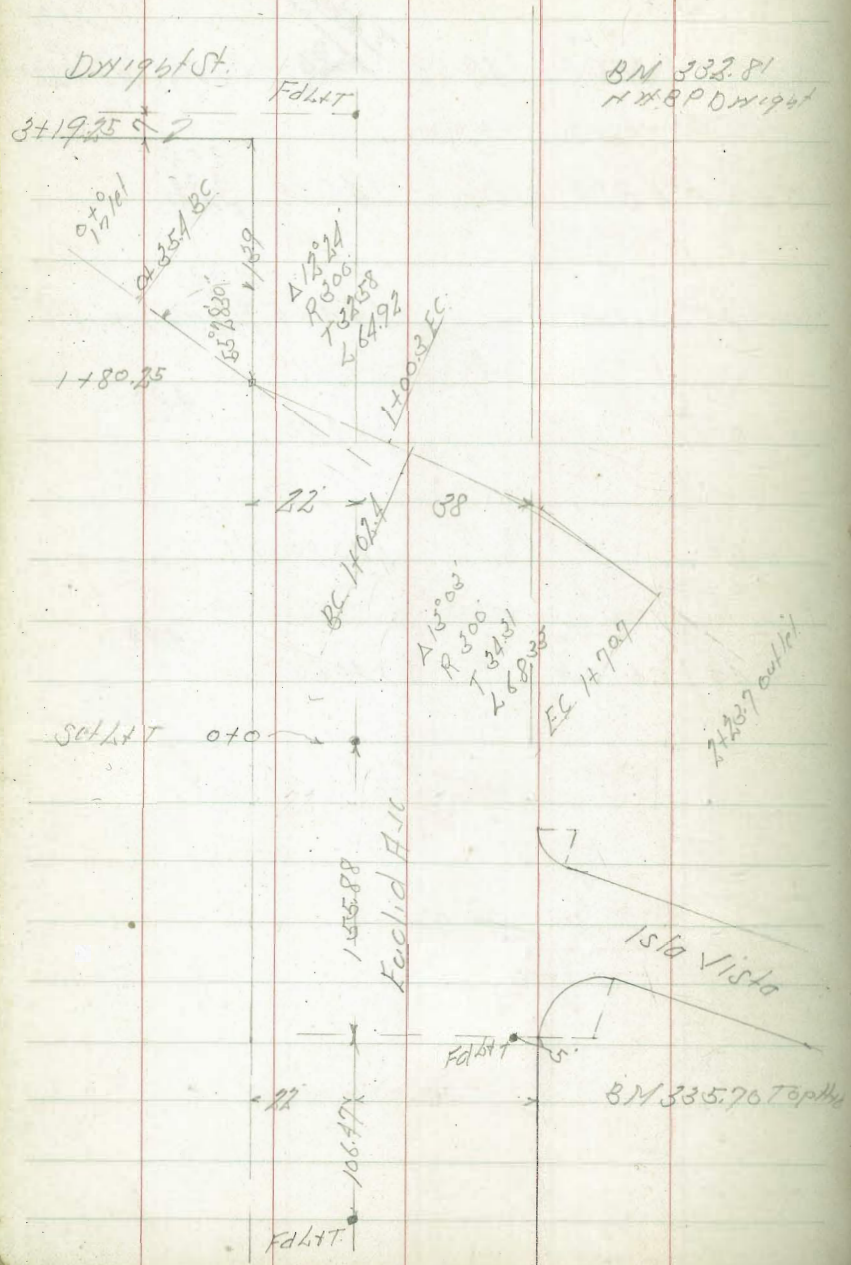 Dwight St.
BM 332.81
N W. B P Dwight
Fd L+T
3+19.25
7
0+0
Inlet
0+35.4 BC
139
55°28'30"
Δ 12°24'
R 300'
T 32.58
L 64.92
1+00.3 EC.
1+80.25
22'
38
BC 1+02.4
Δ 13°03'
R 300'
T 34.31
L 68.33
EC 1+70.7
2+23.7 outlet
Set L+T
0+0
155.88
Euclid Ave
7
Isla Vista
Fd L+T
5'
22
106.47
BM 335.70 Top Hyd
Fd L+T